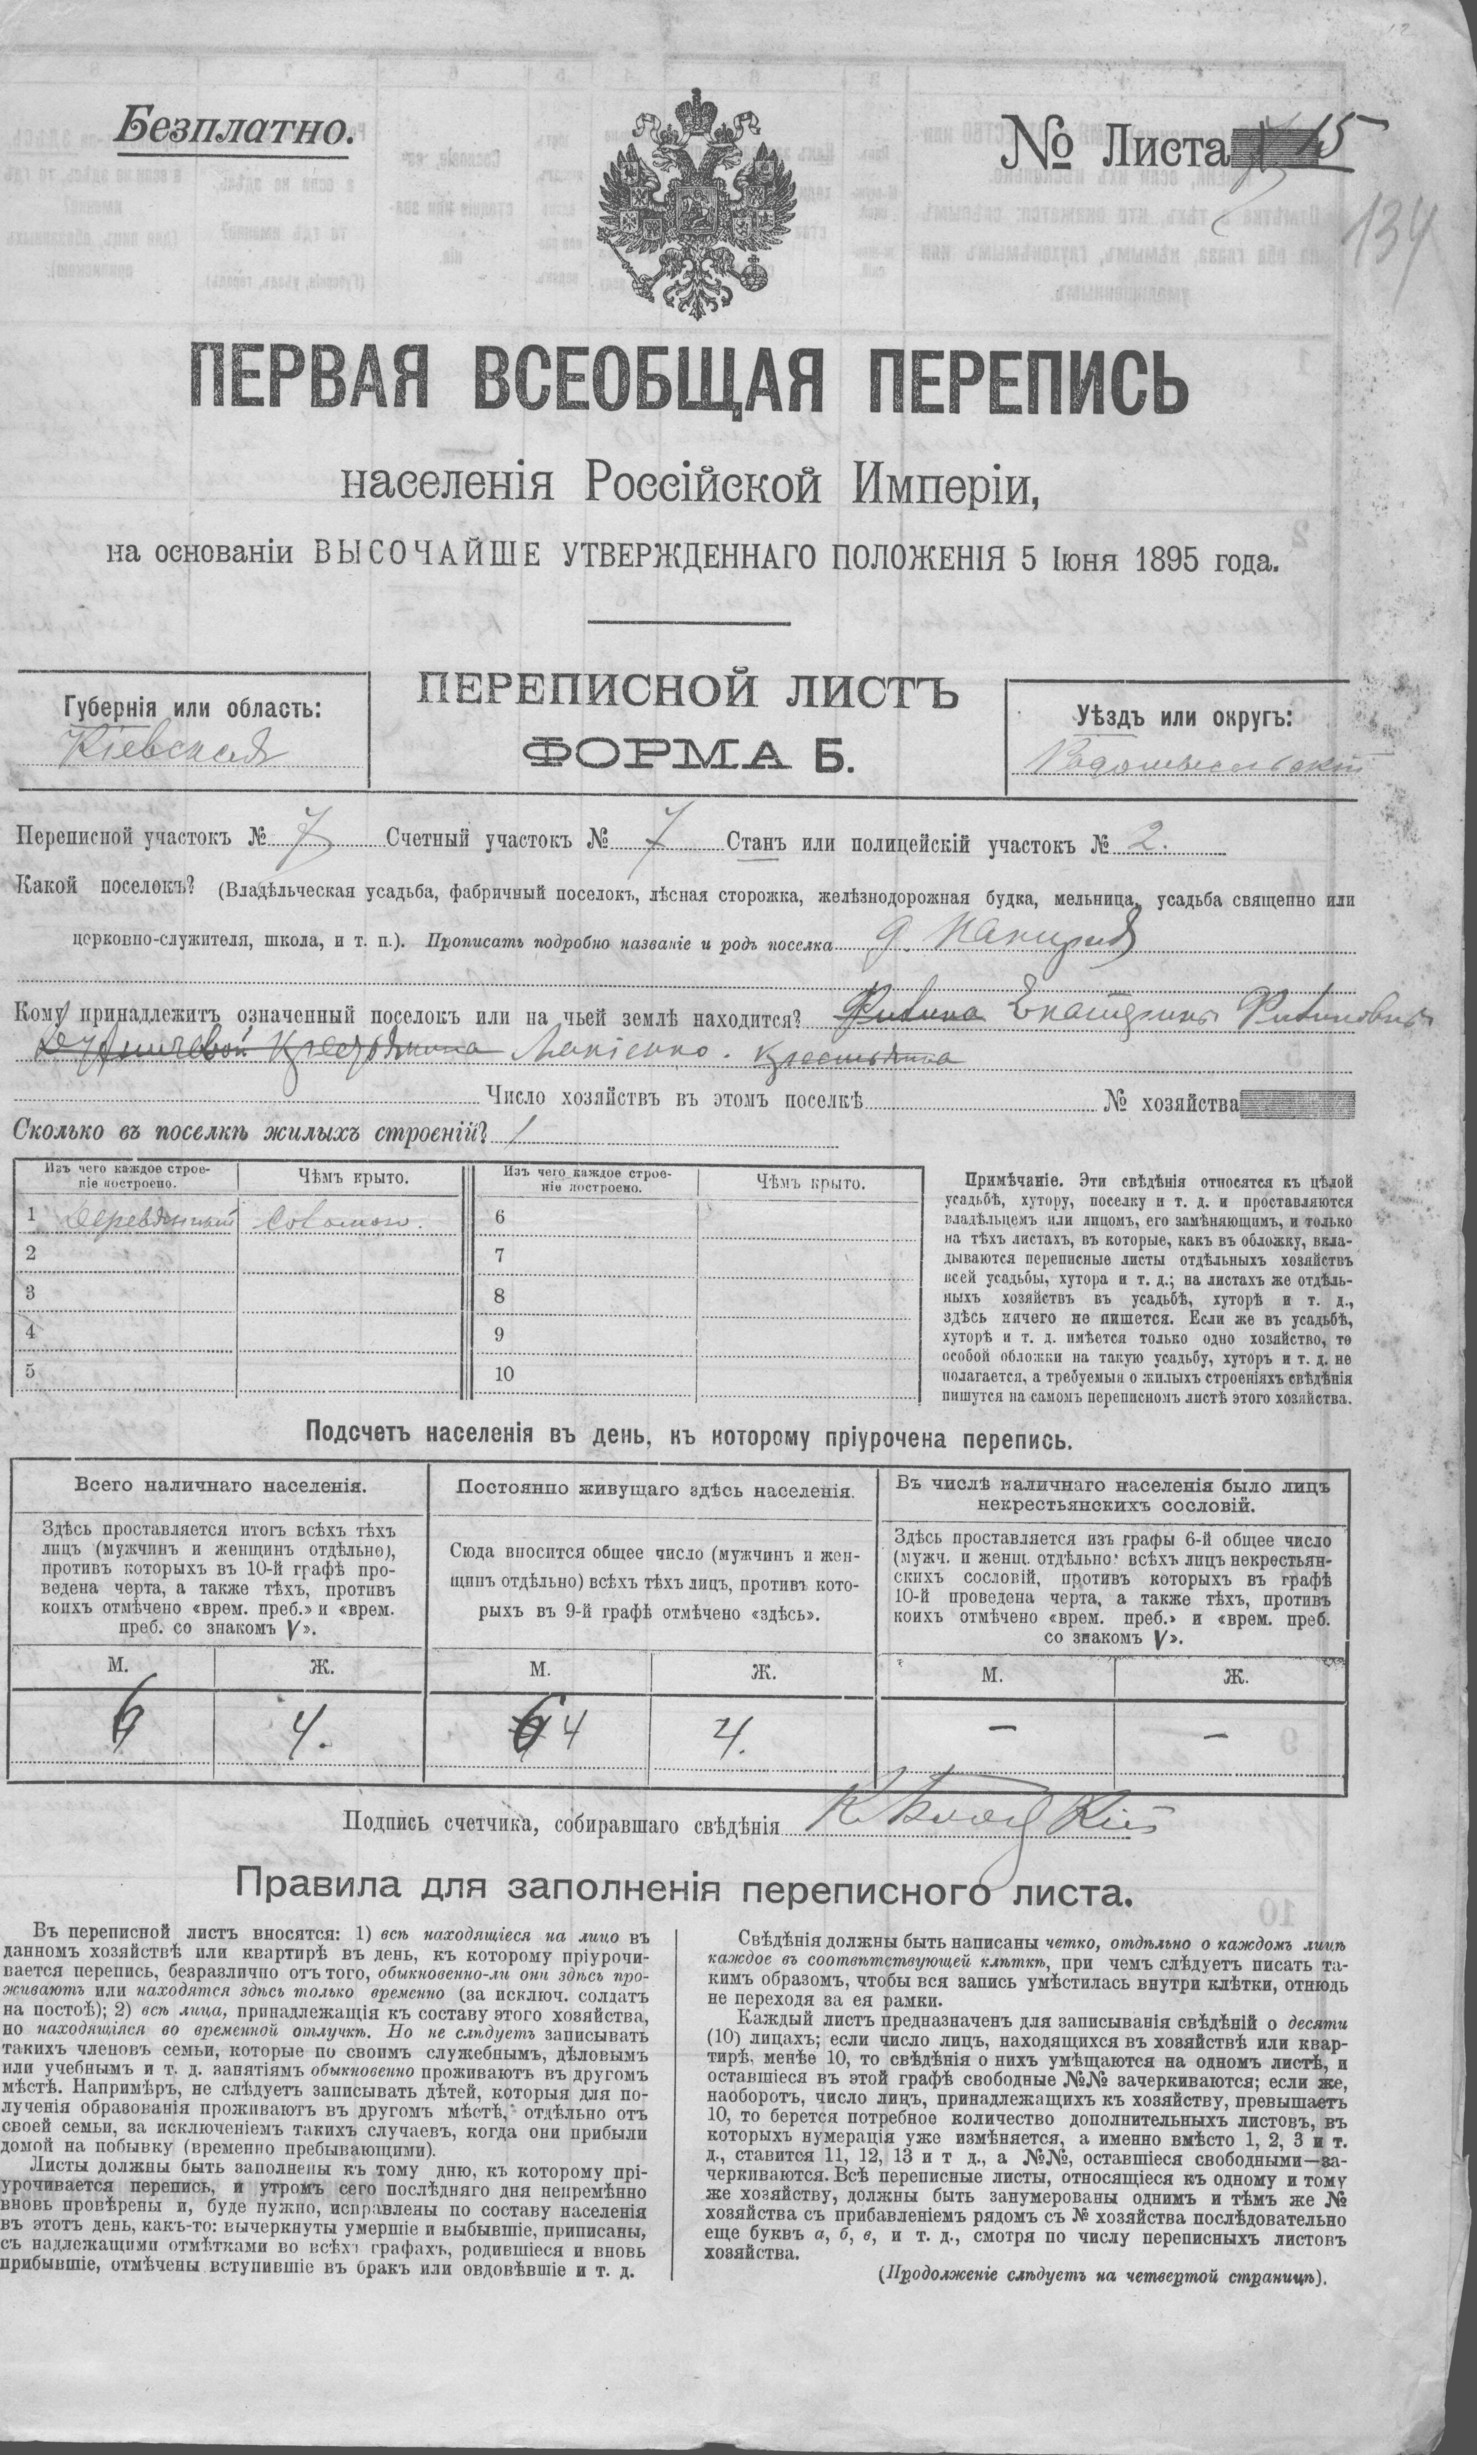 Безплатно.
№ Листа 15
134
ПЕРВАЯ ВСЕОБЩАЯ ПЕРЕПИСЬ
населенія Россійской Имперіи,
на основаніи ВЫСОЧАЙШЕ УТВЕРЖДЕННАГО ПОЛОЖЕНІЯ 5 Іюня 1895 года.
Губернія или область:
Кіевская
ПЕРЕПИСНОЙ ЛИСТЪ
ФОРМА Б.
Уѣздъ или округъ:
Радомысльскій
Переписной участокъ № 7 Счетный участокъ № 7 Станъ или полицейскій участокъ № 2.
Какой поселокъ? (Владѣльческая усадьба, фабричный поселокъ, лѣсная сторожка, желѣзнодорожная будка, мельница, усадьба священно или
церковно-служителя, школа, и т. п.). Прописать подробно названіе и родъ поселка д.
Кому принадлежитъ означенный поселокъ или на чьей землѣ находится? Екатерины
Число хозяйствъ въ этомъ поселкѣ № хозяйства
Сколько въ поселкѣ жилыхъ строеній? 1
Изъ чего каждое строе-
ніе построено.
Чѣмъ крыто.
Изъ чего каждое строе-
ніе построено.
Чѣмъ крыто.
1 Деревянный соломою. 6
2 7
3 8
4 9
5 10
Примѣчаніе. Эти свѣдѣнія относятся къ цѣлой
усадьбѣ, хутору, поселку и т. д. и проставляются
владѣльцемъ или лицомъ, его замѣняющимъ, и только
на тѣхъ листахъ, въ которые, какъ въ обложку, вкла-
дываются переписные листы отдѣльныхъ хозяйствъ
всей усадьбы, хутора и т. д.; на листахъ же отдѣль-
ныхъ хозяйствъ въ усадьбѣ, хуторѣ и т. д.,
здѣсь ничего не пишется. Если же въ усадьбѣ,
хуторѣ и т. д. имѣется только одно хозяйство, то
особой обложки на такую усадьбу, хуторъ и т. д. не
полагается, а требуемыя о жилыхъ строеніяхъ свѣдѣнія
пишутся на самомъ переписномъ листѣ этого хозяйства.
Подсчетъ населенія въ день, къ которому пріурочена перепись.
Всего наличнаго населенія.
Здѣсь проставляется итогъ всѣхъ тѣхъ
лицъ (мужчинъ и женщинъ отдѣльно),
противъ которыхъ въ 10-й графѣ про-
ведена черта, а также тѣхъ, противъ
коихъ отмѣчено «врем. преб.» и «врем.
преб. со знакомъ V».
М. Ж.
6 4.
Постоянно живущаго здѣсь населенія.
Сюда вносится общее число (мужчинъ и жен-
щинъ отдѣльно) всѣхъ тѣхъ лицъ, противъ кото-
рыхъ въ 9-й графѣ отмѣчено «здѣсь».
М. Ж.
6 4 4.
Въ числѣ наличнаго населенія было лицъ
некрестьянскихъ сословій.
Здѣсь проставляется изъ графы 6-й общее число
(мужч. и женщ. отдѣльно) всѣхъ лицъ некрестьян-
скихъ сословій, противъ которыхъ въ графѣ
10-й проведена черта, а также тѣхъ, противъ
коихъ отмѣчено «врем. преб.» и «врем. преб.
со знакомъ V».
М. Ж.
– –
Подпись счетчика, собиравшаго свѣдѣнія
Правила для заполненія переписного листа.
Въ переписной листъ вносятся: 1) всѣ находящіеся на лицо въ
данномъ хозяйствѣ или квартирѣ въ день, къ которому пріурочи-
вается перепись, безразлично отъ того, обыкновенно-ли они здѣсь про-
живаютъ или находятся здѣсь только временно (за исключ. солдатъ
на постоѣ); 2) всѣ лица, принадлежащія къ составу этого хозяйства,
но находящіяся во временной отлучкѣ. Но не слѣдуетъ записывать
такихъ членовъ семьи, которые по своимъ служебнымъ, дѣловымъ
или учебнымъ и т. д. занятіямъ обыкновенно проживаютъ въ другомъ
мѣстѣ. Напримѣръ, не слѣдуетъ записывать дѣтей, которыя для по-
лученія образованія проживаютъ въ другомъ мѣстѣ, отдѣльно отъ
своей семьи, за исключеніемъ такихъ случаевъ, когда они прибыли
домой на побывку (временно пребывающими).
Листы должны быть заполнены къ тому дню, къ которому прі-
урочивается перепись, и утромъ сего послѣдняго дня непремѣнно
вновь провѣрены и, буде нужно, исправлены по составу населенія
въ этотъ день, какъ-то: вычеркнуты умершіе и выбывшіе, приписаны,
съ надлежащими отмѣтками во всѣхъ графахъ, родившіеся и вновь
прибывшіе, отмѣчены вступившіе въ бракъ или овдовѣвшіе и т. д.
Свѣдѣнія должны быть написаны четко, отдѣльно о каждомъ лицѣ
каждое въ соотвѣтствующей клѣткѣ, при чемъ слѣдуетъ писать та-
кимъ образомъ, чтобы вся запись умѣстилась внутри клѣтки, отнюдь
не переходя за ея рамки.
Каждый листъ предназначенъ для записыванія свѣдѣній о десяти
(10) лицахъ; если число лицъ, находящихся въ хозяйствѣ или квар-
тирѣ, менѣе 10, то свѣдѣнія о нихъ умѣщаются на одномъ листѣ, и
оставшіеся въ этой графѣ свободные №№ зачеркиваются; если же,
наоборотъ, число лицъ, принадлежащихъ къ хозяйству, превышаетъ
10, то берется потребное количество дополнительныхъ листовъ, въ
которыхъ нумерація уже измѣняется, а именно вмѣсто 1, 2, 3 и т.
д., ставится 11, 12, 13 и т д., а №№, оставшіеся свободными—за-
черкиваются. Всѣ переписные листы, относящіеся къ одному и тому
же хозяйству, должны быть занумерованы однимъ и тѣмъ же №
хозяйства съ прибавленіемъ рядомъ съ № хозяйства послѣдовательно
еще буквъ а, б, в, и т. д., смотря по числу переписныхъ листовъ
хозяйства.
(Продолженіе слѣдуетъ на четвертой страницѣ).